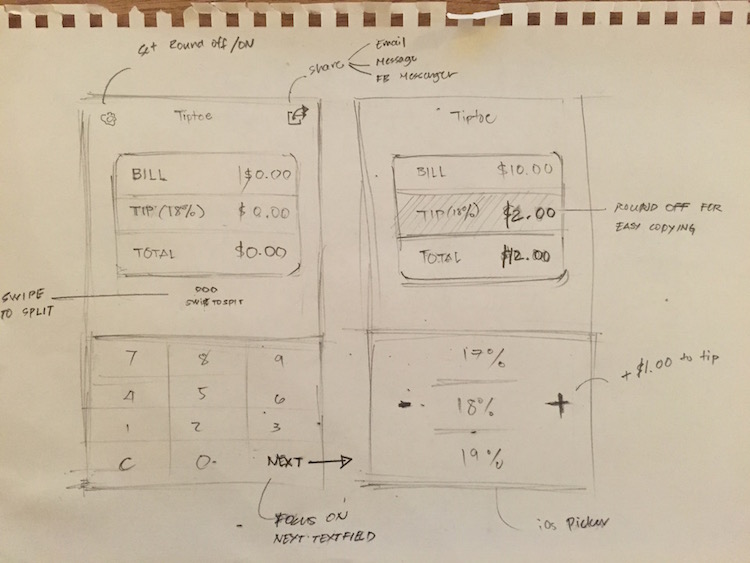 Set Round off/ON
Share
Email
Message
FB Messenger
Tiptoe
BILL $0.00
TIP (18%) $0.00
TOTAL $0.00
SWIPE TO SPLIT
SWIPE
TO SPLIT
7 8 9
4 5 6
1 2 3
C 0 NEXT
FOCUS ON
NEXT TEXTFIELD
Tiptoe
BILL $10.00
TIP (18%) $2.00
TOTAL $12.00
ROUND OFF FOR
EASY COPYING
17%
- 18% +
19%
+$1.00 to tip
iOS Picker